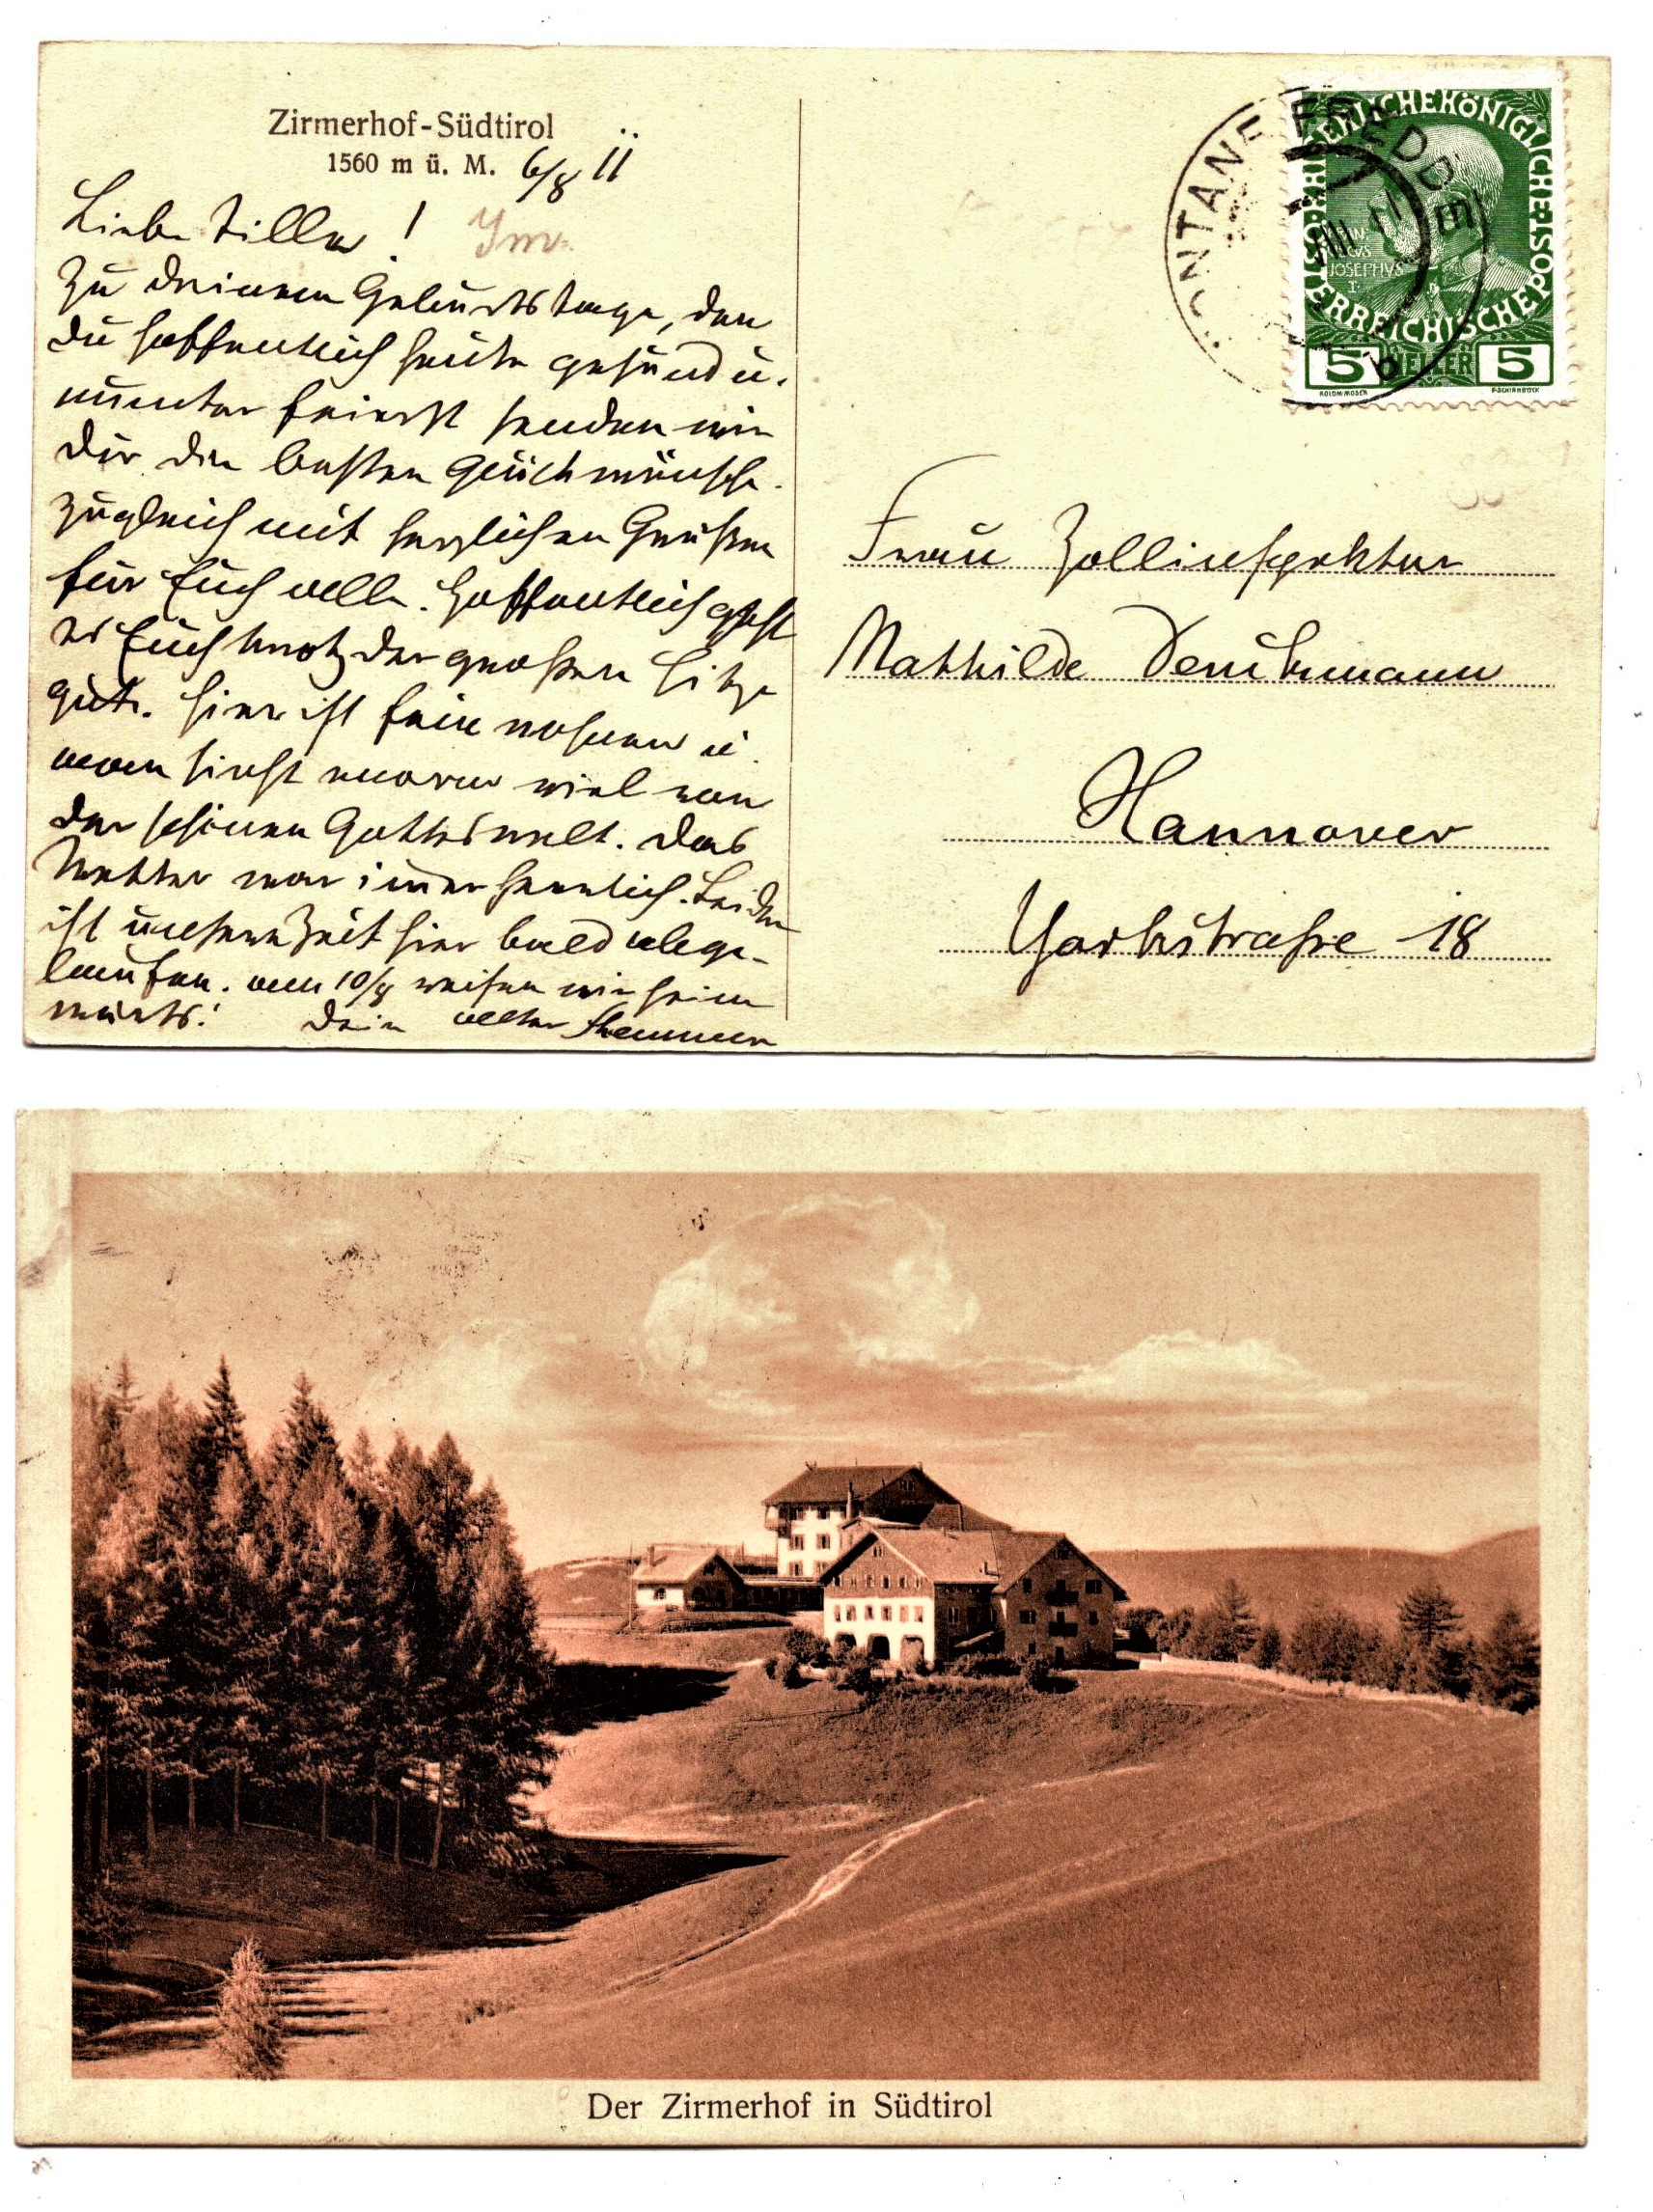 Zirmerhof-Südtirol
1560 m ü. M. 6/8 11
Liebe Tilla!
Zu deinem Geburtstage, den
du hoffentlich heute gesund u.
munter feierst senden wir
dir die besten Glückwünsche.
zugleich mit herzlichen Grüßen
für Euch alle. Hoffentlich geht
es Euch trotz der großen Hitze
gut. Hier ist fein wohnen u.
man sieht enorm viel von
der schönen Gotteswelt. Das
Wetter war immer herrlich. Leider
ist unsere Zeit hier bald abge-
laufen. am 10/8 reisen wir heim
wärts! Dein alter
ONTANE FREDDE
VIII 11
b
KAISERLICHE KÖNIGLICHE
ÖSTERREICHISCHE POST
JOSEPHVS
I.
5 HELLER 5
KOLOM. MOSER
F. SCHIRNBÖCK
Frau Zollinspektor
Mathilde
Hannover
Yorkstraße 18
Der Zirmerhof in Südtirol